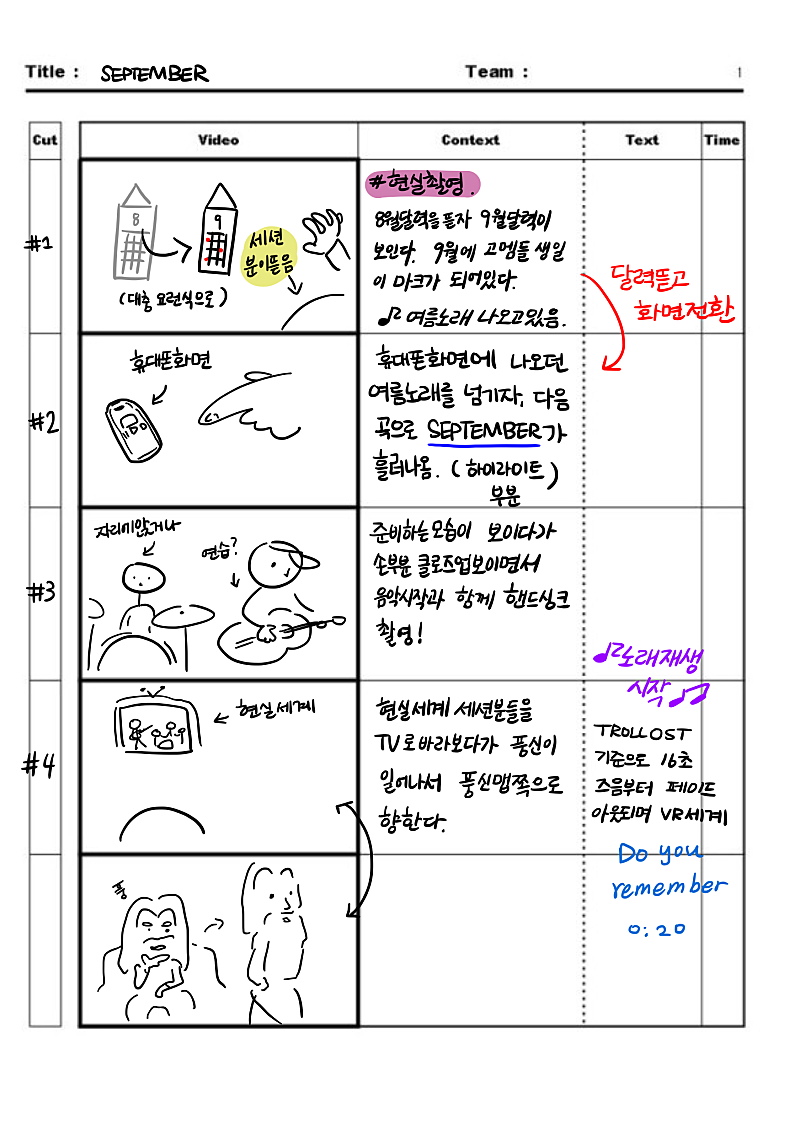 Title : SEPTEMBER
Team :
1
Cut
Video
Context
Text
Time
#1
8
9
세션
분이뜯음
(대충 요런식으로)
#현실촬영.
8월달력을 뜯자 9월달력이
보인다. 9월에 고멤들 생일
이 마크가 되어있다.
♫ 여름노래 나오고있음.
달력뜯고
화면전환
#2
휴대폰화면
휴대폰화면에 나오던
여름노래를 넘기자, 다음
곡으로 SEPTEMBER가
흘러나옴. (하이라이트)
부분
#3
자리에앉거나
연습?
준비하는모습이 보이다가
손부분 클로즈업보이면서
음악시작과 함께 핸드싱크
촬영!
♫노래재생
시작♪♫
#4
현실세계
현실세계 세션분들을
TV로바라보다가 풍신이
일어나서 풍신맵쪽으로
향한다.
TROLL OST
기준으로 16초
즈음부터 페이드
아웃되며 VR세계
Do you
remember
0:20
풍